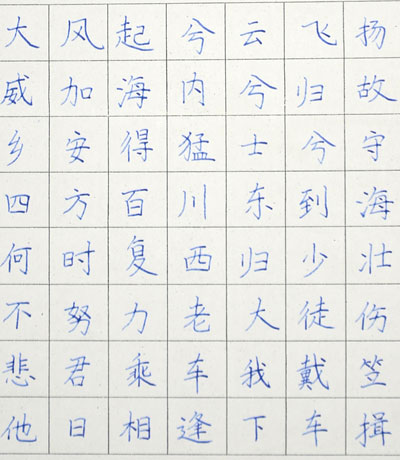 大风起兮云飞扬
威加海内兮归故
乡安得猛士兮守
四方百川东到海
何时复西归少壮
不努力老大徒伤
悲君乘车我戴笠
他日相逢下车揖